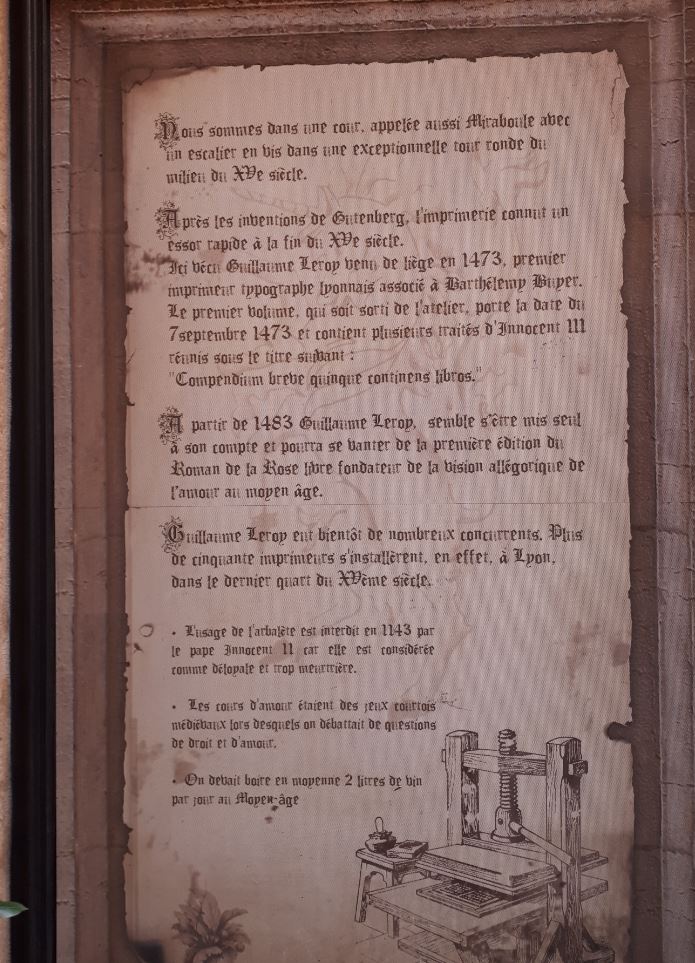 Nous sommes dans une cour, appelée aussi Miraboule avec
un escalier en vis dans une exceptionnelle tour ronde du
milieu du XVe siècle.
Après les inventions de Gutenberg, l'imprimerie connut un
essor rapide à la fin du XVe siècle.
Ici vécu Guillaume Leroy venu de liège en 1473, premier
imprimeur typographe lyonnais associé à Barthélemy Buyer.
Le premier volume, qui soit sorti de l'atelier, porte la date du
7septembre 1473 et contient plusieurs traités d'Innocent III
réunis sous le titre suivant :
"Compendium breve quinque continens libros."
A partir de 1483 Guillaume Leroy, semble s'être mis seul
à son compte et pourra se vanter de la première édition du
Roman de la Rose livre fondateur de la vision allégorique de
l'amour au moyen âge.
Guillaume Leroy eut bientôt de nombreux concurrents. Plus
de cinquante imprimeurs s'installèrent, en effet, à Lyon,
dans le dernier quart du XVème siècle.
• L'usage de l'arbalète est interdit en 1143 par
le pape Innocent II car elle est considérée
comme déloyale et trop meurtrière.
• Les cours d'amour étaient des jeux courtois
médiévaux lors desquels on débattait de questions
de droit et d'amour.
• On devait boire en moyenne 2 litres de vin
par jour au Moyen-âge